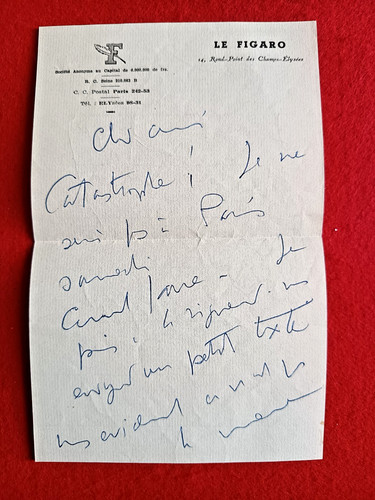 F
LE FIGARO
Société Anonyme au Capital de 6.000.000 de frs.
14, Rond-Point des Champs-Elysées
R. C. Seine 210.083 B
C. C. Postal Paris 242-53
Tél. : ELYsées 98-31
Cher ami
Catastrophe ! Je ne
suis pas à Paris
samedi.
Je
puis à la rigueur vous
envoyer un petit texte
mais évidemment ce n'est pas
la même